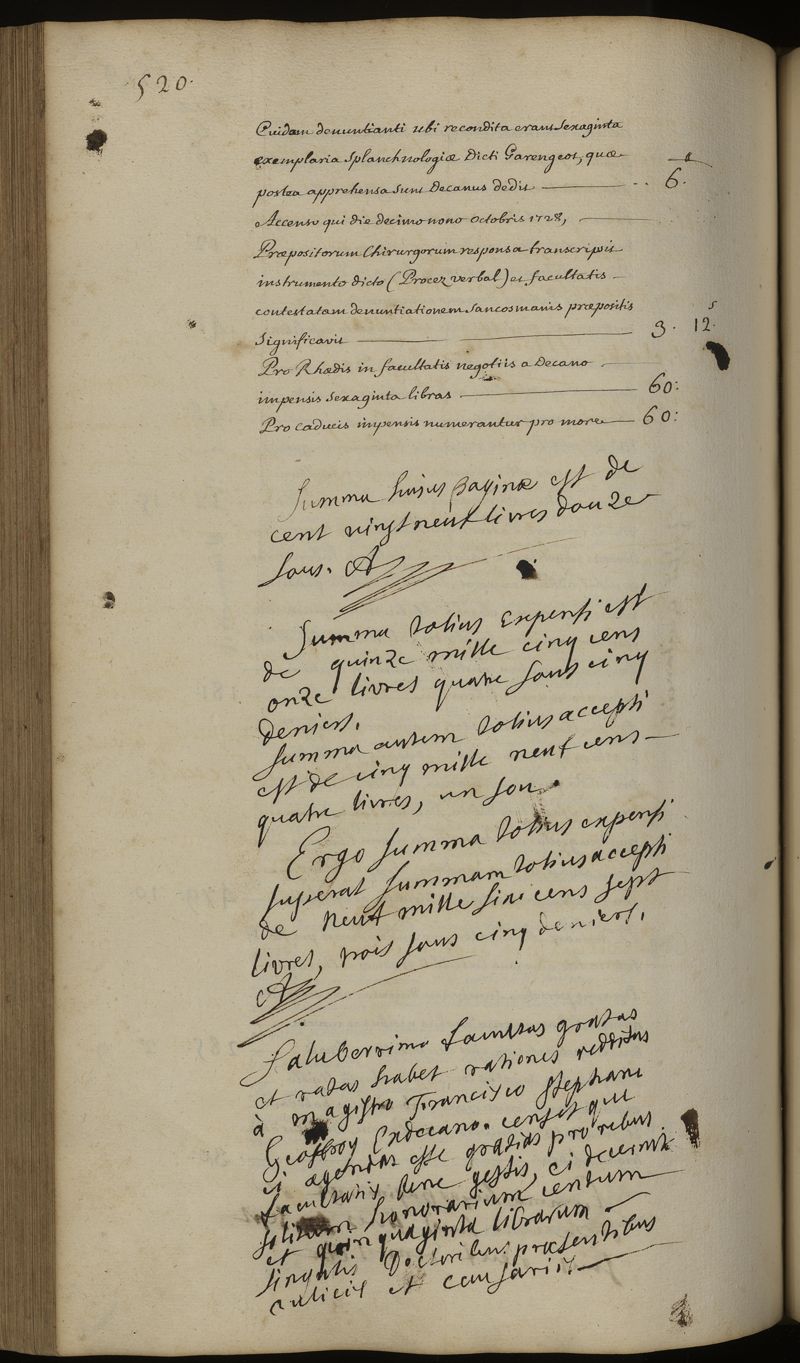 520.
Cuidam denuntianti ubi recondita erant sexaginta
exemplaria splanchnologiæ dicti Garengeot, quæ
postea apprehensa sunt Decanus dedit — 6.
Accenso qui die decimo nono Octobris 1728,
Præpositorum Chirurgorum responsa transcripsit
instrumento dicto (Procez verbal) et facultatis
contestatam denuntiationem Sancosmanis præpositis
significavit — 3. 12. s
Pro Rhædis in facultatis negotiis a Decano
impensis sexaginta libras — 60:
Pro caducis impensis numerantur pro more — 60:
Summa hujus paginæ est de
cent vingt neuf livres douze
sous. A
Summa totius expensi est
de quinze mille cinq cens
onze livres quatre sous cinq
deniers.
Summa autem totius accepti
est de cinq mille neuf cens
quatre livres, un sou.
Ergo summa totius expensi
superat summam totius accepti
de neuf mille six cens sept
livres, trois sous cinq deniers.
A
Saluberrima facultas gratas
et ratas habet rationes redditas
à magistro Francisco Stephano
Geoffroy Exdecano. censet que
ei agendas esse gratias pro rebus
facultatis bene gestis, ei decernit
solitum honorarium centum
et quinquaginta librarum
singulis Doctoribus præsentibus
et causariis.